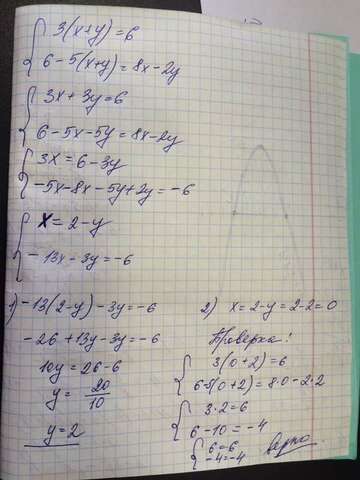 3(x+y)=6
6-5(x+y)=8x-2y
3x+3y=6
6-5x-5y=8x-2y
3x=6-3y
-5x-8x-5y+2y=-6
x=2-y
-13x-3y=-6
1) -13(2-y)-3y=-6
-26+13y-3y=-6
10y=26-6
y=20/10
y=2
2) x=2-y=2-2=0
Проверка!
3(0+2)=6
6-5(0+2)=8·0-2·2
3·2=6
6-10=-4
6=6
-4=-4
Верно.